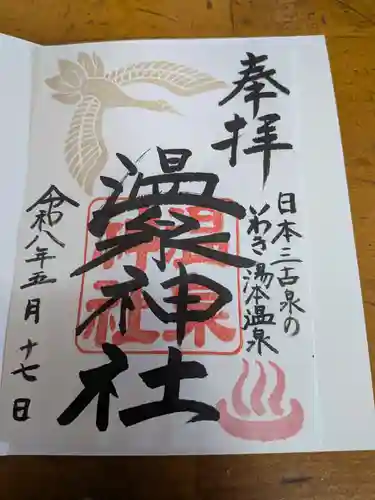 奉拝
日本三古泉の
いわき湯本温泉
温泉神社
温泉
神社
令和八年五月十七日